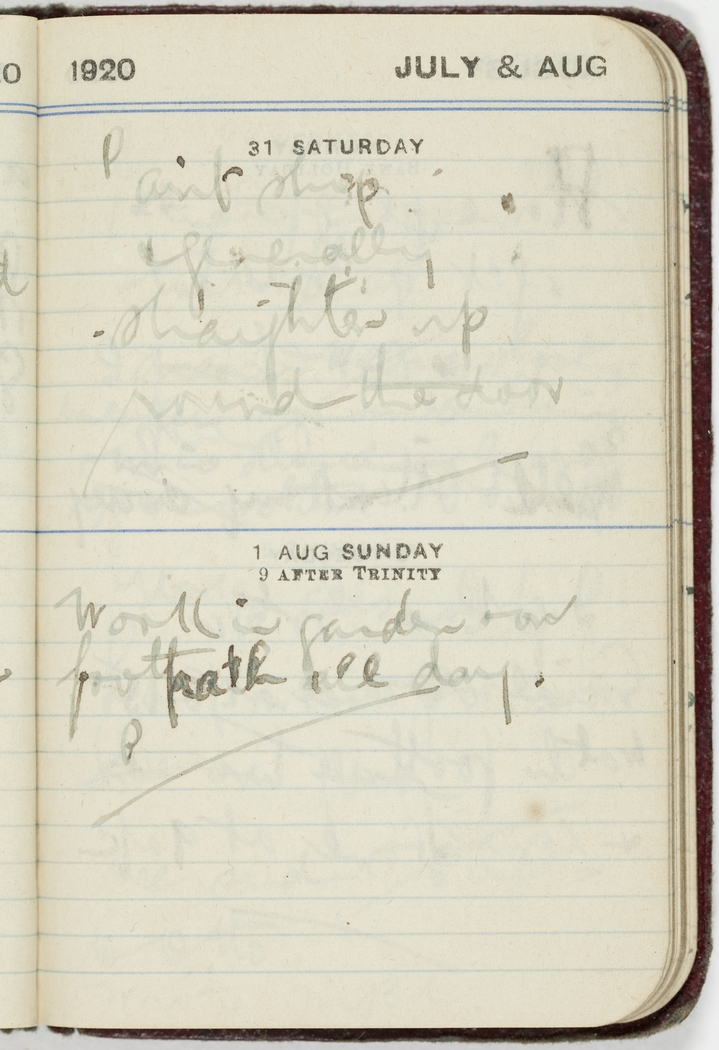 1920 JULY & AUG
31 SATURDAY
Paint shop
generally
straighten up
round the door
1 AUG SUNDAY
9 AFTER TRINITY
Work in garden on
foot path all day.